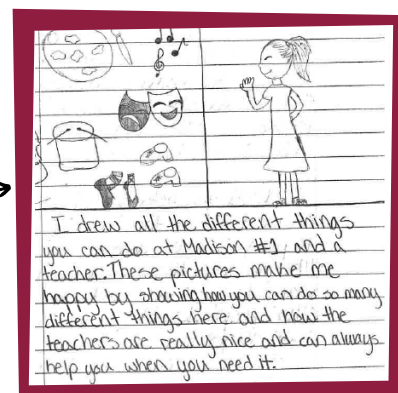 I drew all the different things
you can do at Madison #1 and a
teacher. These pictures make me
happy by showing how you can do so many
different things here and how the
teachers are really nice and can always
help you when you need it.